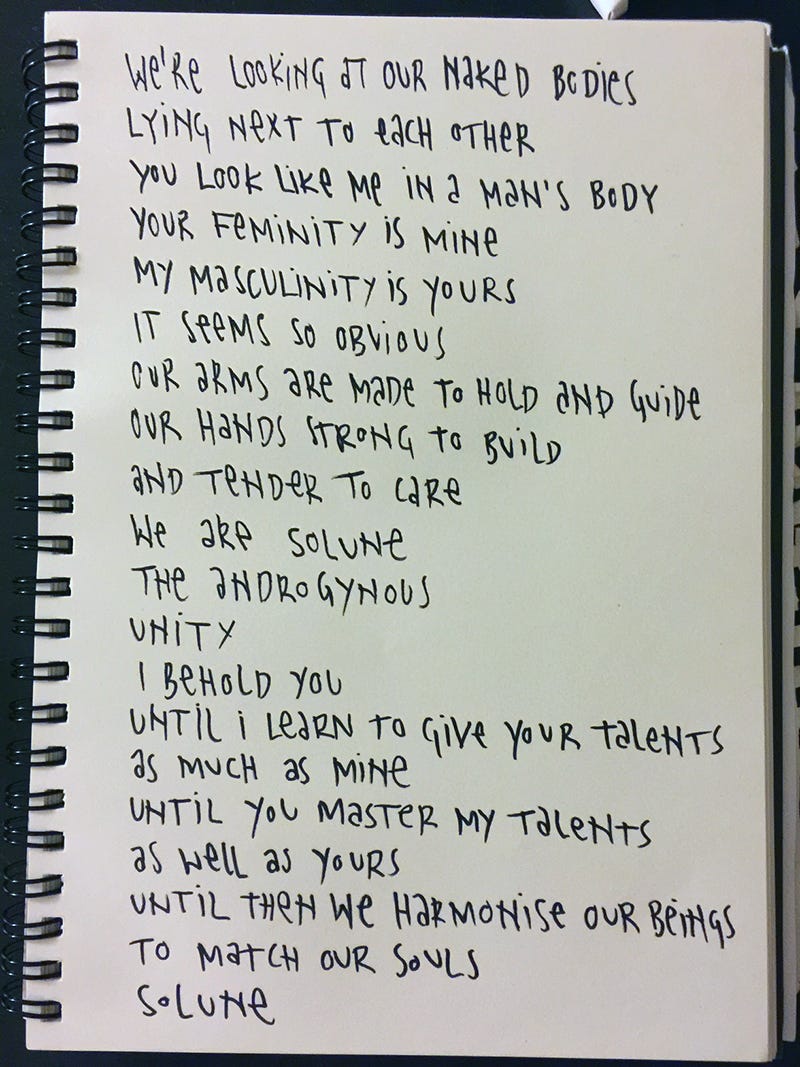 We're looking at our naked bodies
lying next to each other
you look like me in a man's body
your feminity is mine
my masculinity is yours
it seems so obvious
our arms are made to hold and guide
our hands strong to build
and tender to care
we are solune
the androgynous
unity
i behold you
until i learn to give your talents
as much as mine
until you master my talents
as well as yours
until then we harmonise our beings
to match our souls
solune